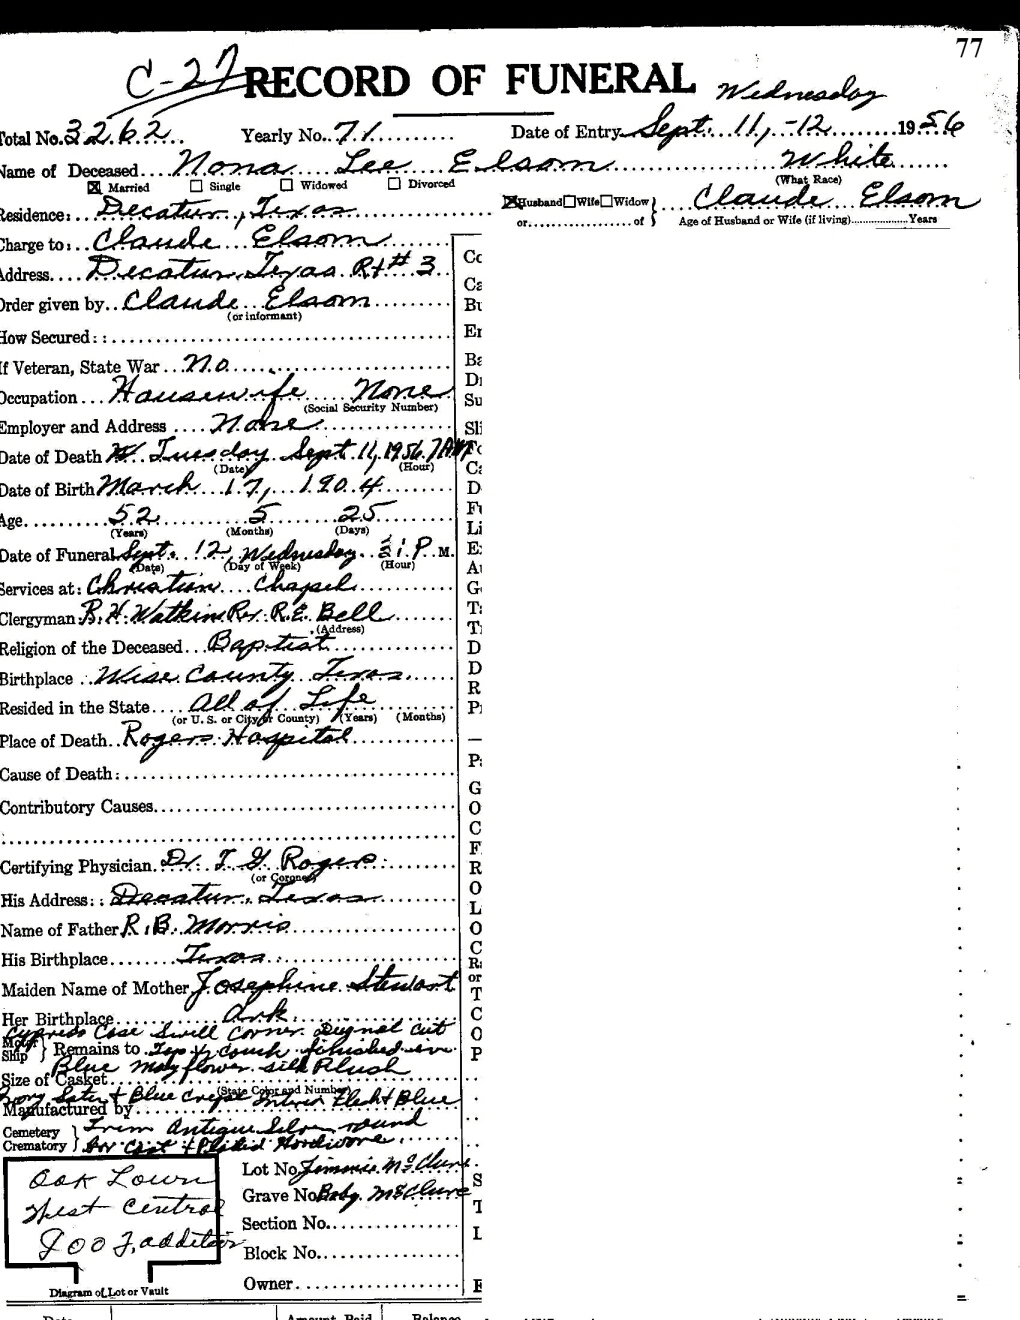 77
C-27 RECORD OF FUNERAL Wednesday
Total No. 3262 Yearly No. 71 Date of Entry Sept. 11,-12 1956
Name of Deceased Nona Lee Elsom White
(What Race)
☒ Married ☐ Single ☐ Widowed ☐ Divorced
☒Husband☐Wife☐Widow} Claude Elsom
or of } Age of Husband or Wife (if living) Years
Residence: Decatur, Texas
Charge to: Claude Elsom
Address Decatur, Texas Rt# 3
Order given by Claude Elsom
(or informant)
How Secured: :
If Veteran, State War No
Occupation Housewife None
(Social Security Number)
Employer and Address None
Date of Death Tuesday Sept. 11, 1956. 7AM
(Date) (Hour)
Date of Birth March 17, 1904
Age 52 5 25
(Years) (Months) (Days)
Date of Funeral Sept. 12, Wednesday P. M.
(Date) (Day of Week) (Hour)
Services at: Christian Chapel
Clergyman R. H. Watkins Rev. R.E. Bell
(Address)
Religion of the Deceased Baptist
Birthplace Wise County Texas
Resided in the State All of Life
(or U. S. or City or County) (Years) (Months)
Place of Death Rogers Hospital
Cause of Death:
Contributory Causes
Certifying Physician Dr. T G Rogers
(or Coroner)
His Address: : Decatur, Texas
Name of Father R. B. Morris
His Birthplace Texas
Maiden Name of Mother Josephine Stewart
Her Birthplace Ark.
Cypress Case Swell Corner Octagonal cut
Motor
Ship } Remains to Top 1/2 couch finished in
Blue Mayflower silk Plush
Size of Casket
(State Color and Number)
Manufactured by Blue Crepe Interior Flesh & Blue
Cemetery
Crematory } Trim Antique Silver round
Cast & Plated Hardware
Oak Lawn
West Central
900 J. addition
Diagram of Lot or Vault
Lot No. Jimmie McClure
Grave No. Baby McClure
Section No.
Block No.
Owner
Date Amount Paid Balance